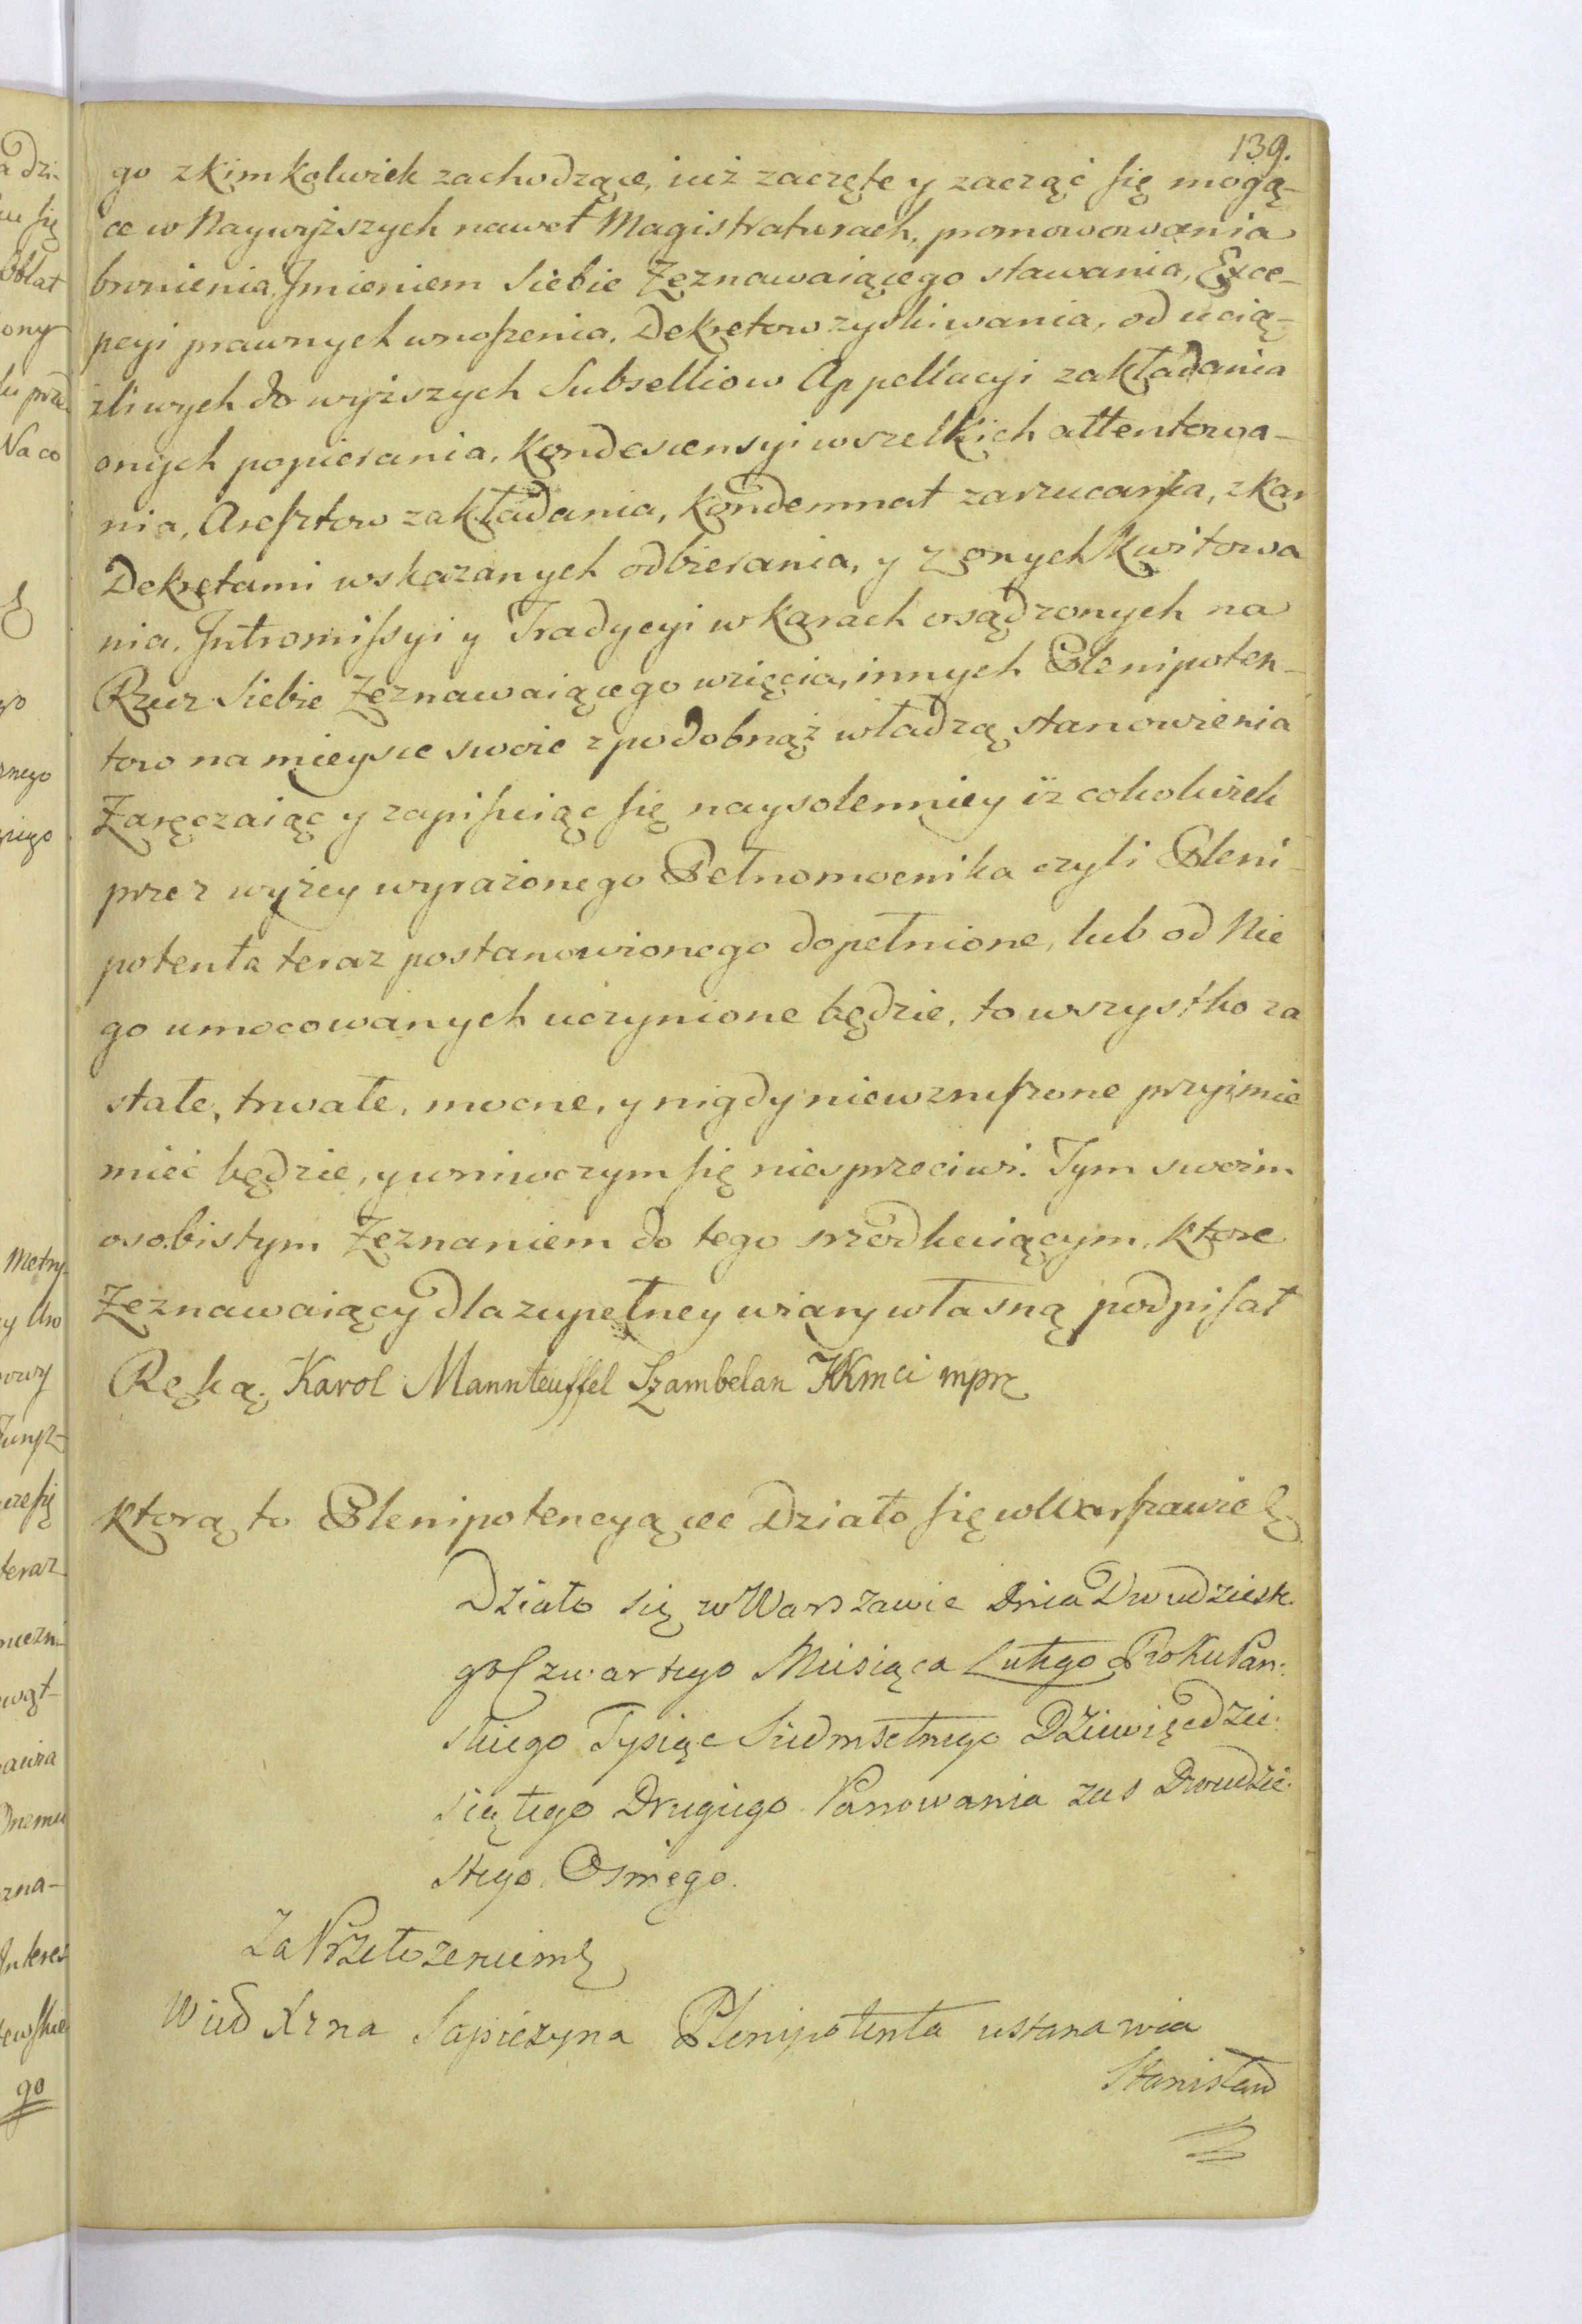 139.
go zkimkolwiek zachodzące, iuż zaczęte y zacząć się mogą-
ce w Naywyższych nawet Magistraturach, promowowania
bronienia, Jmieniem Siebie Zeznawaiącego stawania, Exce-
pcyi prawnych wnoszenia, Dekretow zyskiwania, od ucią-
żliwych do wyższych Subselliow Appellacyi zakładania
onych popierania, Kondescensyi wszelkich attentowa-
nia, Aresztow zakładania, Kondemnat zarzucania, z kar
Dekretami wskazanych odbierania, y z onych Kwitowa
nia, Intromissyi y Tradycyi w karach osądzonych na
Rzecz Siebie Zeznawaiącego wzięcia, innych Plenipoten-
tow na mieysce swoie z podobnąż władzą stanowienia
Zaręczaiąc y zapisuiąc się naysolenniey iż cokolwiek
przez wyżey wyrażonego Pełnomocnika czyli Pleni-
potenta teraz postanowionego dopełnione, lub od Nie
go umocowanych uczynione będzie, to wszystko za
stałe, trwałe, mocne, y nigdy niewzruszone przyimie
mieć będzie, y wniwczym się niesprzeciwi. Tym swoim
osobistym Zeznaniem do tego srzodkuiącym, ktore
Zeznawaiący dla zupełney wiary własną podpisał
Ręką. Karol Mannteuffel Szambelan JKKmci mpr
Ktorą to Plenipotencyą etc Działo się w Warszawie
Działo się w Warszawie Dnia Dwudziest-
go Czwartego Miesiąca Lutego Roku Pań-
skiego Tysiąc Siedmsetnego Dziewięćdzie-
siątego Drugiego Panowania zas Dwudzie-
stego Osmego.
Za Przełożeniem
Wied Xrna Sapieżyna Plenipotenta ustanawia
Stanisław
a dzi-
się
Oblat
ony
Na co
Metry-
teraz
wąt-
zna-
Interes
go